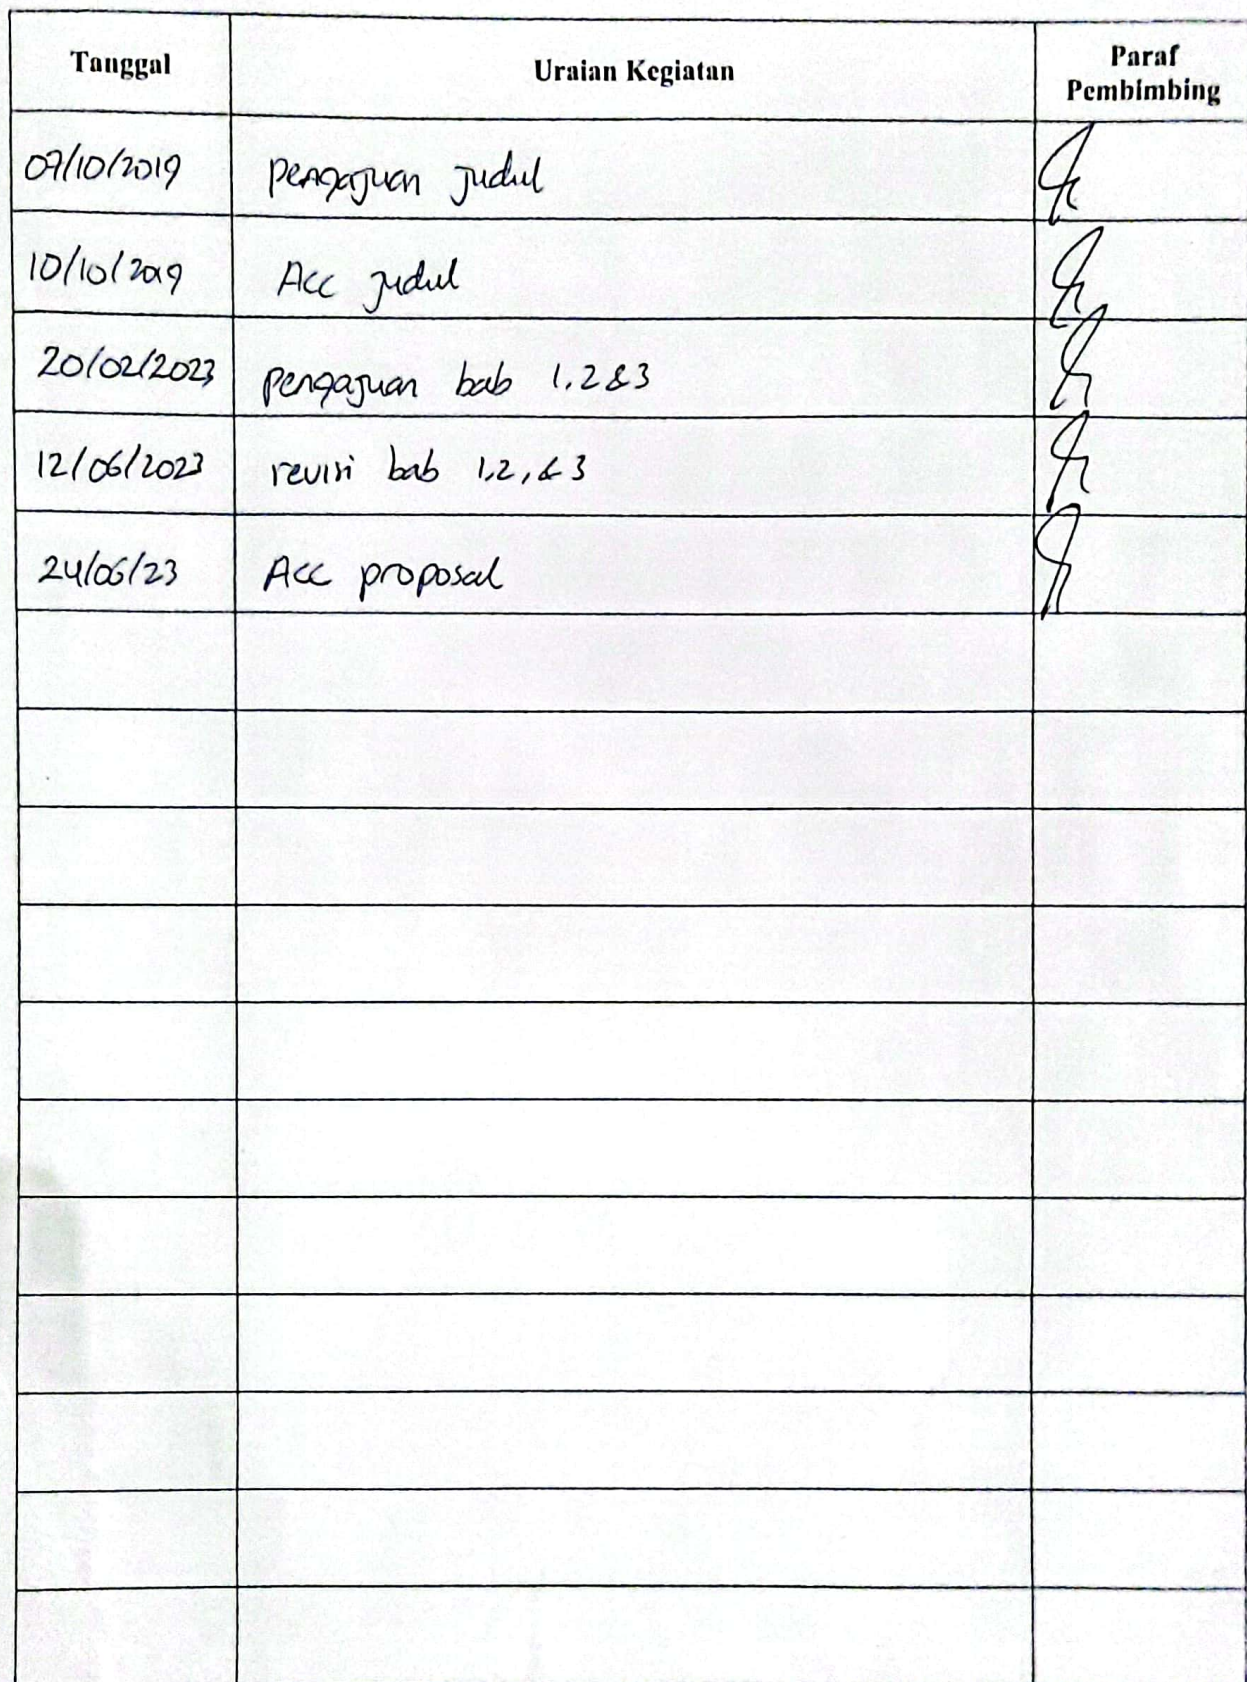 Tanggal Uraian Kegiatan Paraf
Pembimbing
07/10/2019 pengajuan judul
10/10/2019 Acc judul
20/02/2023 pengajuan bab 1, 2 & 3
12/06/2023 revisi bab 1, 2, & 3
24/06/23 Acc proposal